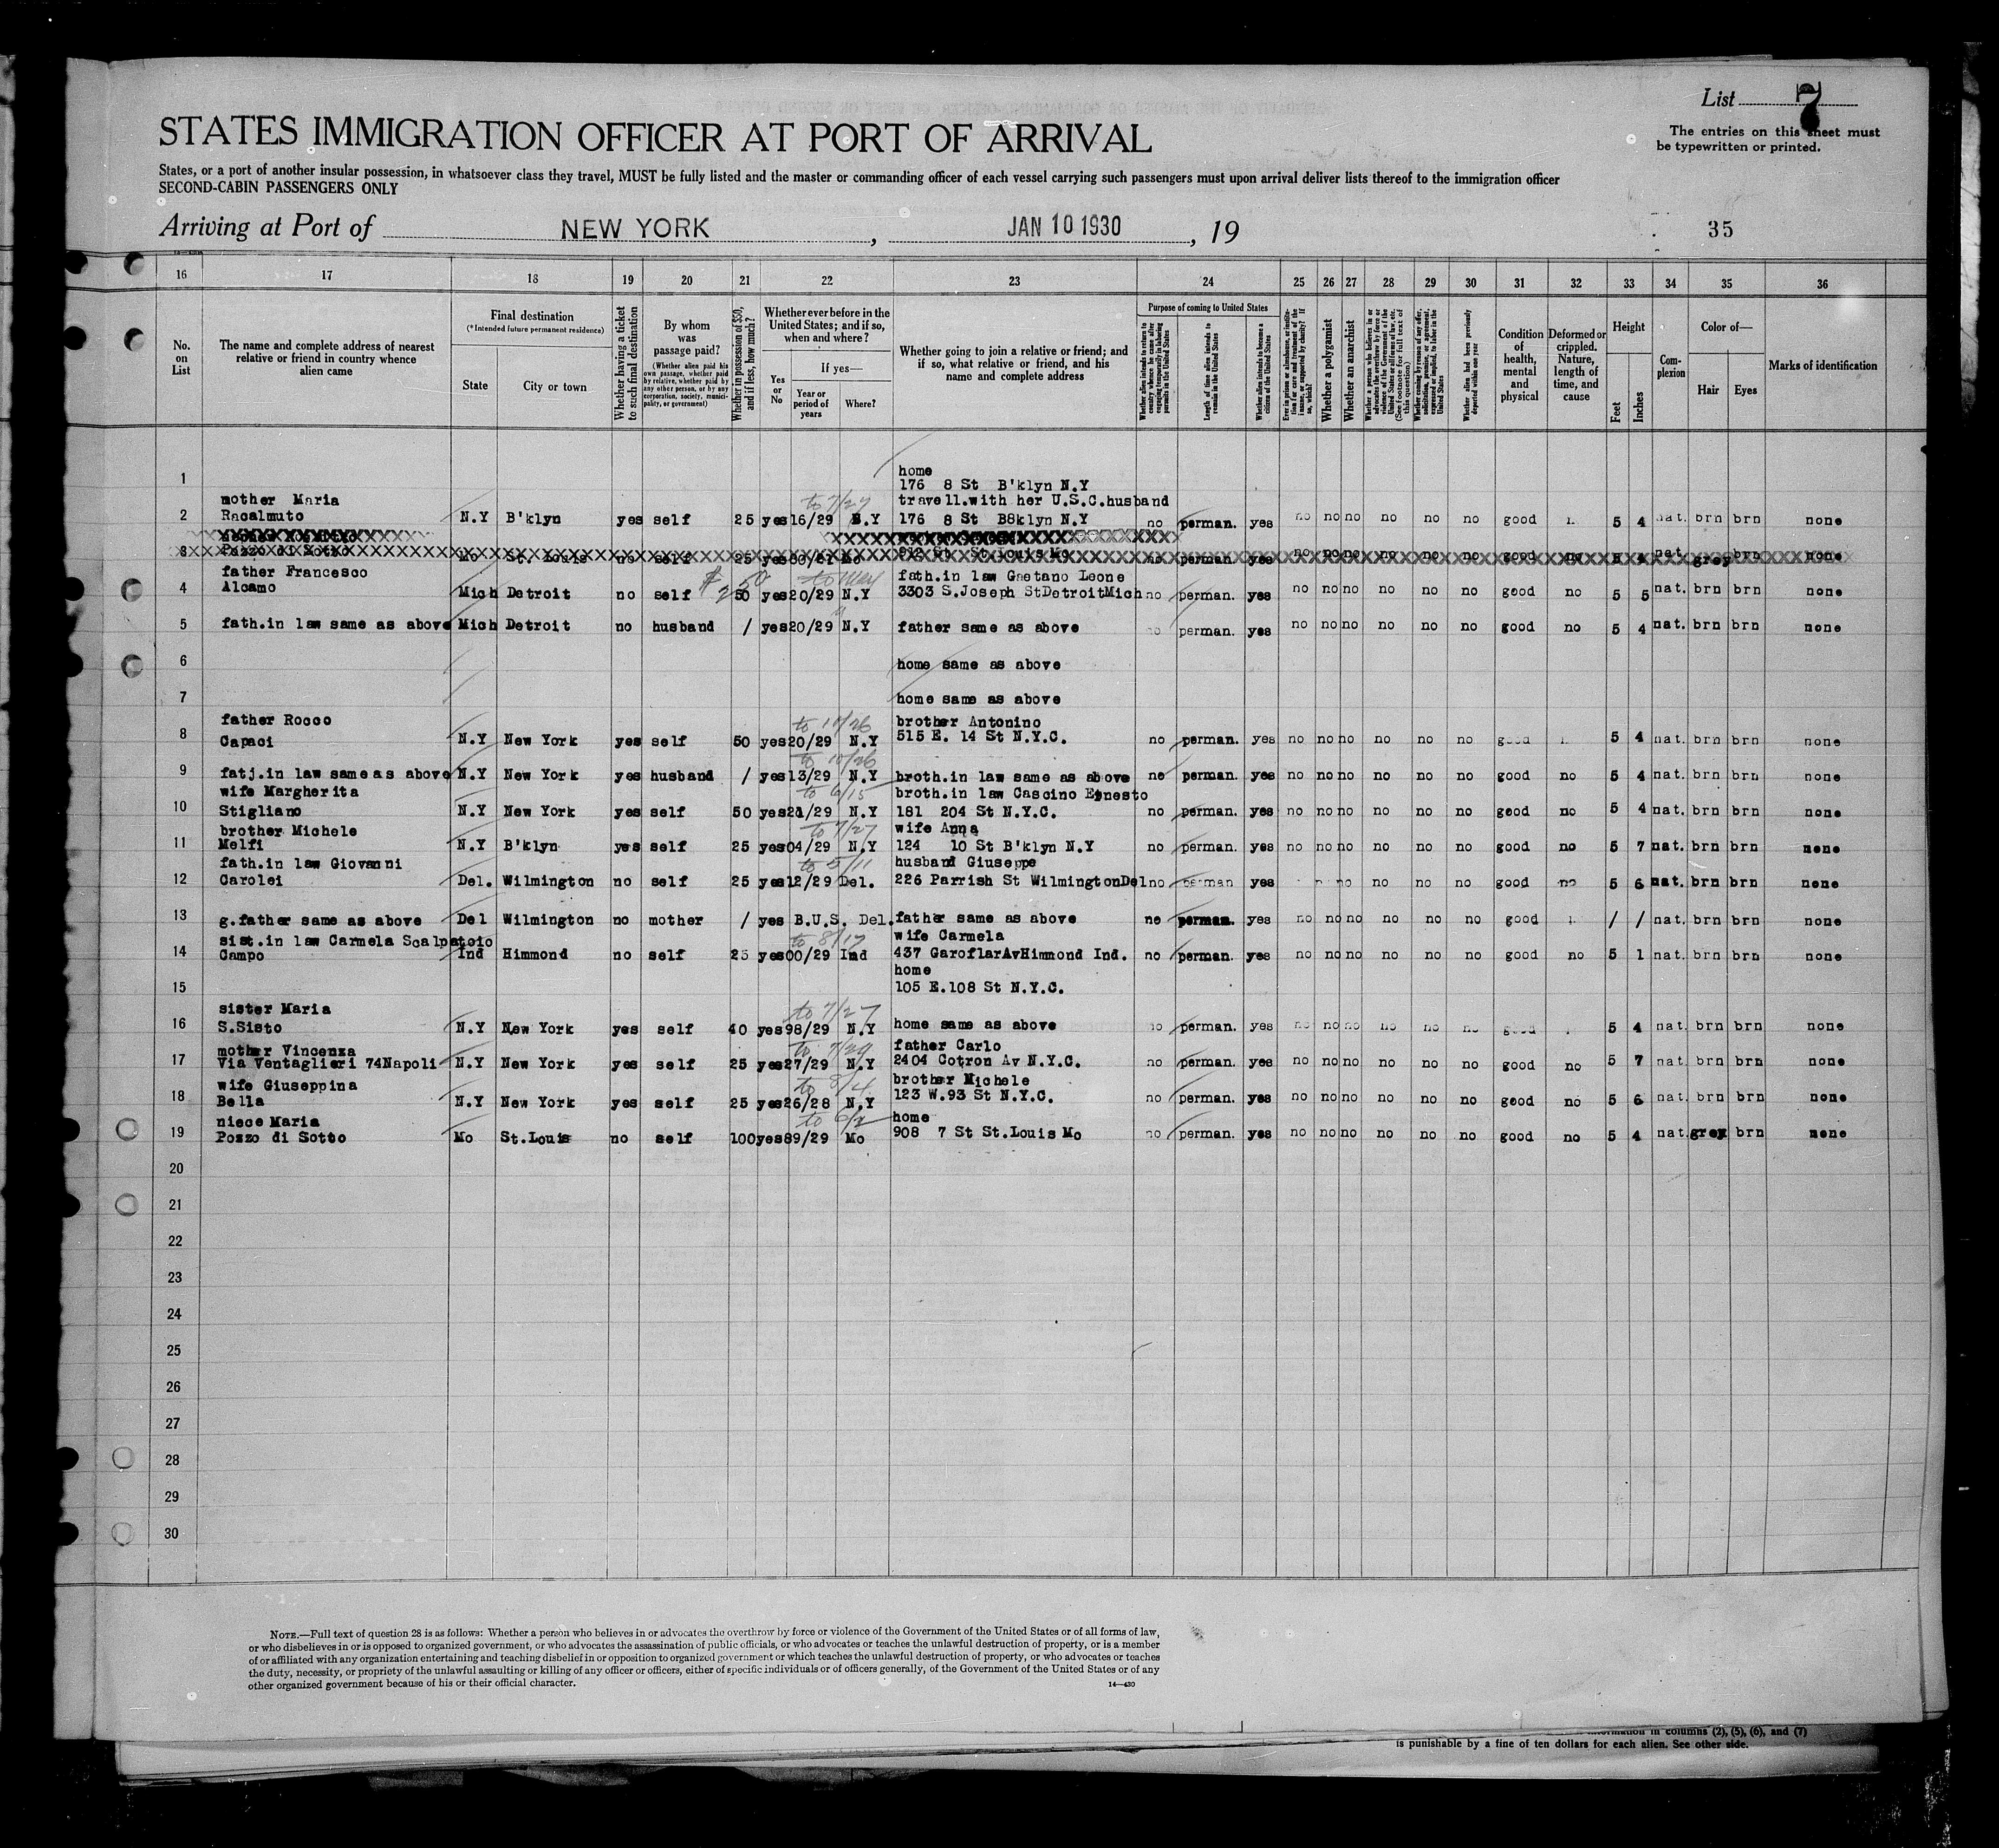 List 7
The entries on this sheet must
be typewritten or printed.
STATES IMMIGRATION OFFICER AT PORT OF ARRIVAL
States, or a port of another insular possession, in whatsoever class they travel, MUST be fully listed and the master or commanding officer of each vessel carrying such passengers must upon arrival deliver lists thereof to the immigration officer
SECOND-CABIN PASSENGERS ONLY
Arriving at Port of NEW YORK, JAN 10 1930, 19
35
16 17 18 19 20 21 22 23 24 25 26 27 28 29 30 31 32 33 34 35 36
No. on List
The name and complete address of nearest relative or friend in country whence alien came
Final destination
(*Intended future permanent residence)
State
City or town
Whether having a ticket to such final destination
By whom was passage paid?
(Whether alien paid his own passage, whether paid by relative, whether paid by any other person, or by any corporation, society, municipality, or government)
Whether in possession of $50, and if less, how much?
Whether ever before in the United States; and if so, when and where?
Yes or No
If yes—
Year or period of years
Where?
Whether going to join a relative or friend; and if so, what relative or friend, and his name and complete address
Purpose of coming to United States
Whether alien intends to return to country whence he came after engaging temporarily in laboring pursuits in the United States
Length of time alien intends to remain in the United States
Whether alien intends to become a citizen of the United States
Ever in prison or almshouse, or institution for care and treatment of the insane, or supported by charity? If so, which?
Whether a polygamist
Whether an anarchist
Whether a person who believes in or advocates the overthrow by force or violence of the Government of the United States or all forms of law, etc. (See footnote for full text of this question)
Whether coming by reason of any offer, solicitation, promise, or agreement, expressed or implied, to labor in the United States
Whether alien had been previously deported within one year
Condition of health, mental and physical
Deformed or crippled. Nature, length of time, and cause
Height
Feet
Inches
Complexion
Color of—
Hair
Eyes
Marks of identification
1 home
176 8 St B'klyn N.Y
mother Maria travell.with her U.S.C.husband
to 7/27
2 Racalmuto N.Y B'klyn yes self 25 yes 16/29 N.Y 176 8 St B8klyn N.Y no perman. yes no no no no no no good 5 4 nat. brn brn none
3 Pozzo di Sotto Mo St. Louis no self 25 yes Mo 912 St St Louis Mo no perman. yes no no no no no no good no nat grey brn none
father Francesco $50 to May fath.in law Gaetano Leone
4 Alcamo Mich Detroit no self 50 yes 20/29 N.Y 3303 S.Joseph StDetroitMich no perman. yes no no no no no no good no 5 5 nat. brn brn none
5 fath.in law same as above Mich Detroit no husband / yes 20/29 N.Y father same as above no perman. yes no no no no no no good no 5 4 nat. brn brn none
6 home same as above
7 home same as above
father Rocco to 10/26 brother Antonino
8 Capaci N.Y New York yes self 50 yes 20/29 N.Y 515 E. 14 St N.Y.C. no perman. yes no no no no no no good 5 4 nat. brn brn none
to 10/26
9 fatj.in law same as above N.Y New York yes husband / yes 13/29 N.Y broth.in law same as above no perman. yes no no no no no no good no 5 4 nat. brn brn none
wife Margherita to 6/15 broth.in law Cascino Ernesto
10 Stigliano N.Y New York yes self 50 yes 21/29 N.Y 181 204 St N.Y.C. no perman. yes no no no no no no good no 5 4 nat. brn brn none
brother Michele to 7/27 wife Anna
11 Melfi N.Y B'klyn yes self 25 yes 04/29 N.Y 124 10 St B'klyn N.Y no perman. yes no no no no no no good no 5 7 nat. brn brn none
fath.in law Giovanni to 5/11 husband Giuseppe
12 Carolei Del. Wilmington no self 25 yes 12/29 Del. 226 Parrish St WilmingtonDel no perman yes no no no no good no 5 6 nat. brn brn none
13 g.father same as above Del Wilmington no mother / yes B.U.S. Del. father same as above no perman. yes no no no no no no good / / nat. brn brn none
sist.in law Carmela Scalpatoio to 8/17 wife Carmela
14 Campo Ind Himmond no self 25 yes 00/29 Ind 437 GaroflarAvHimmond Ind. no perman. yes no no no no no no good no 5 1 nat. brn brn none
home
15 105 E.108 St N.Y.C.
sister Maria to 7/27
16 S.Sisto N.Y New York yes self 40 yes 98/29 N.Y home same as above no perman. yes no no no no no no good 5 4 nat. brn brn none
mother Vincenza to 7/29 father Carlo
17 Via Ventaglieri 74Napoli N.Y New York yes self 25 yes 27/29 N.Y 2404 Cotron Av N.Y.C. no perman. yes no no no no no no good no 5 7 nat. brn brn none
wife Giuseppina to 8/4 brother Michele
18 Bella N.Y New York yes self 25 yes 26/28 N.Y 123 W.93 St N.Y.C. no perman. yes no no no no no no good no 5 6 nat. brn brn none
niece Maria to 6/2 home
19 Pozzo di Sotto Mo St.Louis no self 100 yes 89/29 Mo 908 7 St St.Louis Mo no perman. yes no no no no no no good no 5 4 nat. grey brn none
20
21
22
23
24
25
26
27
28
29
30
NOTE.—Full text of question 28 is as follows: Whether a person who believes in or advocates the overthrow by force or violence of the Government of the United States or of all forms of law,
or who disbelieves in or is opposed to organized government, or who advocates the assassination of public officials, or who advocates or teaches the unlawful destruction of property, or is a member
of or affiliated with any organization entertaining and teaching disbelief in or opposition to organized government or which teaches the unlawful destruction of property, or who advocates or teaches
the duty, necessity, or propriety of the unlawful assaulting or killing of any officer or officers, either of specific individuals or of officers generally, of the Government of the United States or of any
other organized government because of his or their official character.
14—430
information in columns (2), (5), (6), and (7)
is punishable by a fine of ten dollars for each alien. See other side.